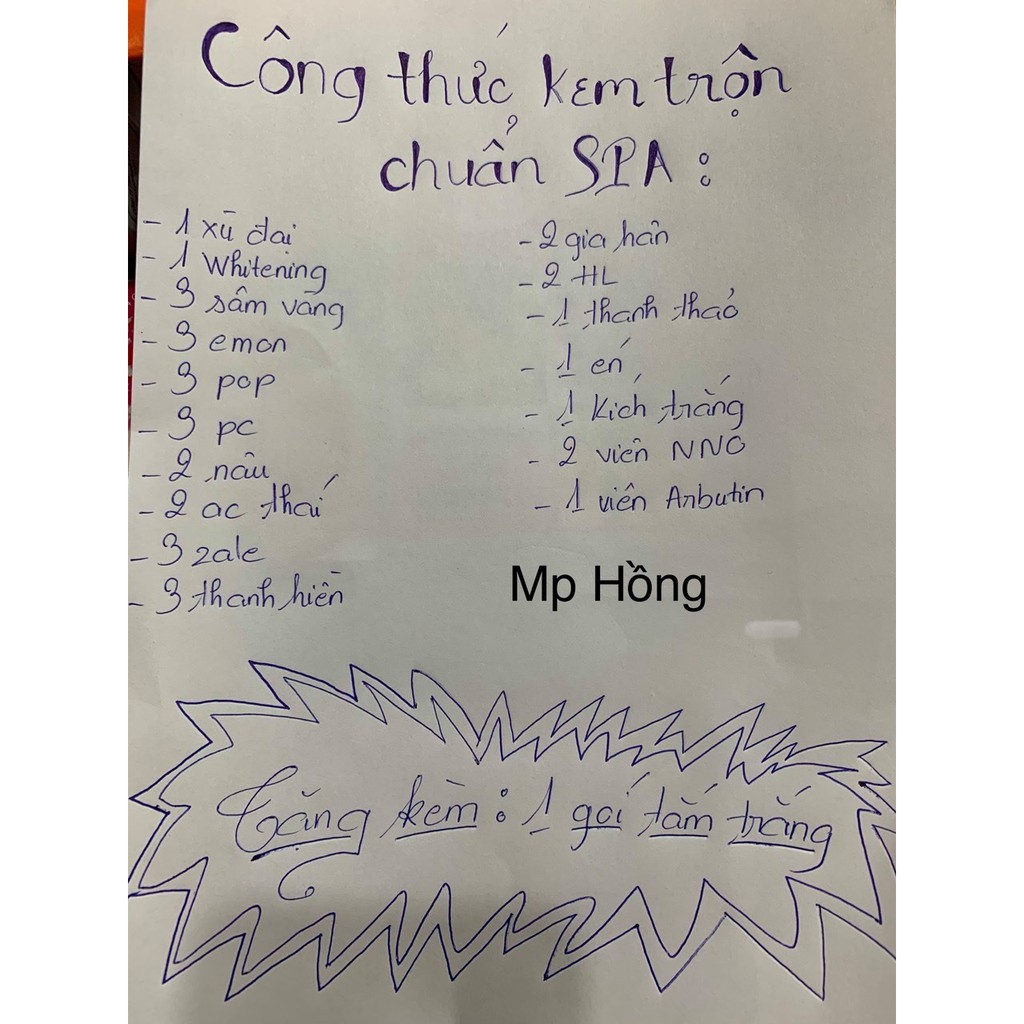 Công thức kem trộn
chuẩn SPA :
- 1 xủ đại
- 1 Whitening
- 3 sâm vàng
- 3 emon
- 3 pop
- 3 pc
- 2 nâu
- 2 ac thái
- 3 zale
- 3 thanh hiền
- 2 gia hân
- 2 HL
- 1 thanh thảo
- 1 én
- 1 Kích trắng
- 2 viên NNO
- 1 viên Arbutin
Mp Hồng
Tặng kèm : 1 gói tắm trắng